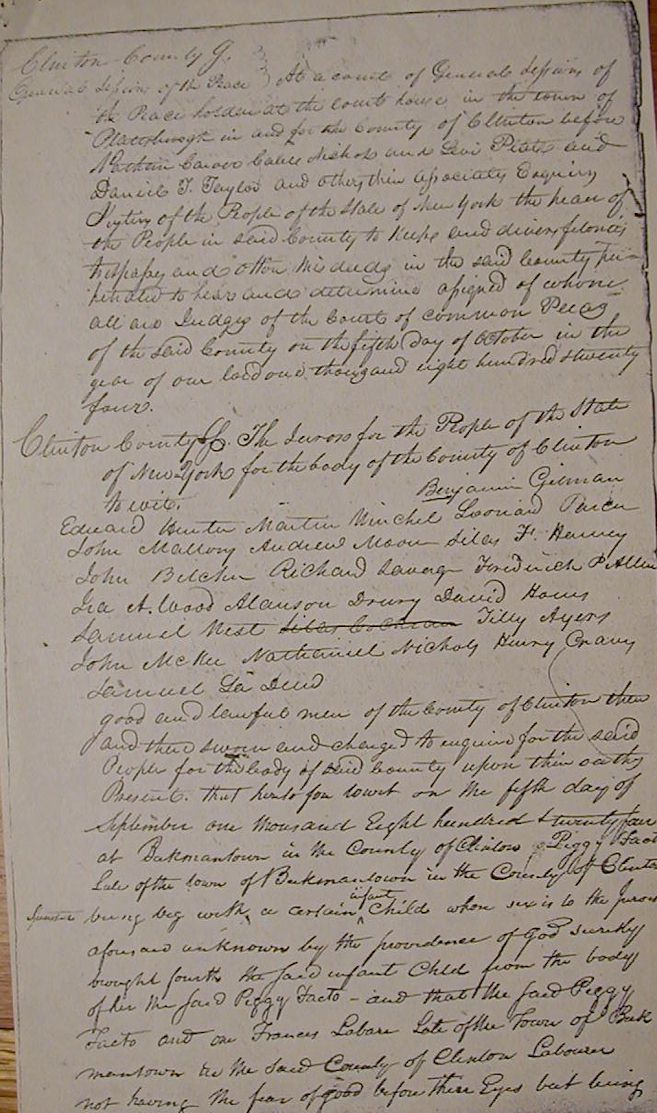 Clinton County ss.
General Sessions of the Peace } At a court of General Sessions of
the Peace holden at the court house in the town of
Plattsburgh in and for the County of Clinton before
Nathan Carver Caleb Nichols and Levi Platt and
Daniel T. Taylor and others their associates Esquires
Justices of the People of the State of New York the peace of
the People in said County to Keep and divers felonies
trespasses and other Misdeeds in the said County per-
petrated to hear and determine assigned of whom
all are Judges of the Court of common Pleas
of the said County on the fifth Day of October in the
year of our lord one thousand eight hundred & twenty
four.
Clinton County ss. The Jurors for the People of the State
of New York for the body of the County of Clinton
to wit. Benjamin Gilman
Edward Hunter Martin Winchel Leonard
John Mallory Andrew Moon Silas F. Harvey
John Belcher Richard Savage Frederick P Allen
Ira A. Wood Alanson Drury David Haws
Samuel West Silas Cochran Tilly Ayers
John McKee Nathaniel Nichols Henry
Samuel La Deud
good and lawful men of the County of Clinton then
and there sworn and charged to enquire for the said
People for the body of said County upon their oaths
Present. that heretofore towit on the fifth day of
September one thousand Eight hundred & twenty four
at Beekmantown in the County of Clinton Peggy Facto
Late of the town of Beekmantown in the County of Clinton
Spinster being beg with a certain infant Child whose sex is to the Jurors
aforesaid unknown by the providence of God secretly
brought fourth the said infant Child from the body
of her the said Peggy Facto - and that the said Peggy
Facto and one Frances Labare Late of the Town of Beek
mantown in the said County of Clinton Labourer
not having the fear of good before there Eyes but being